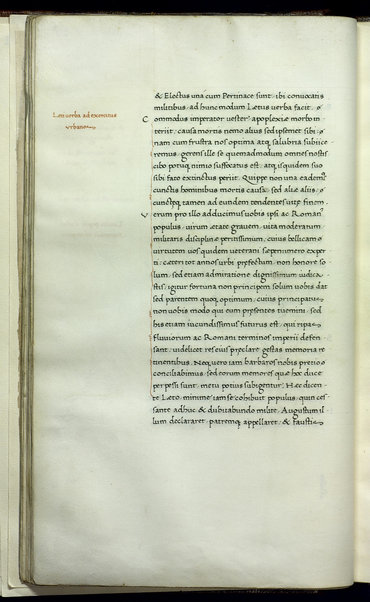 Læti verba ad exercitus
urbanos
& Electus una cum Pertinace sunt. ibi convocatis
militibus, ad hunc modum Lætus verba facit. C
ommodus imperator vester apoplexiæ morbo in
teriit. causa mortis nemo alius sed ipsemet sibi.
nam cum frustra nos optima atq; salubria subiice
remus, gerens ille se quemadmodum omnes nostis
cibo potuq; nimio suffocatus est. atq; is quidem suo
sibi fato extinctus periit. Quippe non una eademq;
cunctis hominibus mortis causa. sed aliæ aliis.
cunctæq; tamen ad eundem tendentes vitæ finem.
Verum pro illo adducimus vobis ipsi ac Roman9
populus, virum ætate gravem, vita moderatum
militaris disciplinæ peritissimum, cuius bellicam
virtutem vos quidem veterani sæpenumero exper
ti. cæteri tot annos urbi præfectum, non honore so
lum, sed etiam admiratione dignissimum iudica
stis. igitur fortuna non principem solum vobis dat
sed parentem quoq; optimum. cuius principatus
non vobis modo qui eum præsentes tuemini, sed
his etiam iucundissimus futurus est, qui ripas
fluviorum ac Romani terminos imperii defen
sant. videlicet res eius præclare gestas memoria re
tinentibus. Neq; vero iam barbaros nobis pretio
conciliabimus, sed eorum memores quæ hoc duce
perpessi sunt, metu potius subigentur. Hæc dicen
te Læto, minime iam se cohibuit populus, quin ces
sante adhuc & dubitabundo milite, Augustum il
lum declararet, patremq; appellaret. & faustis